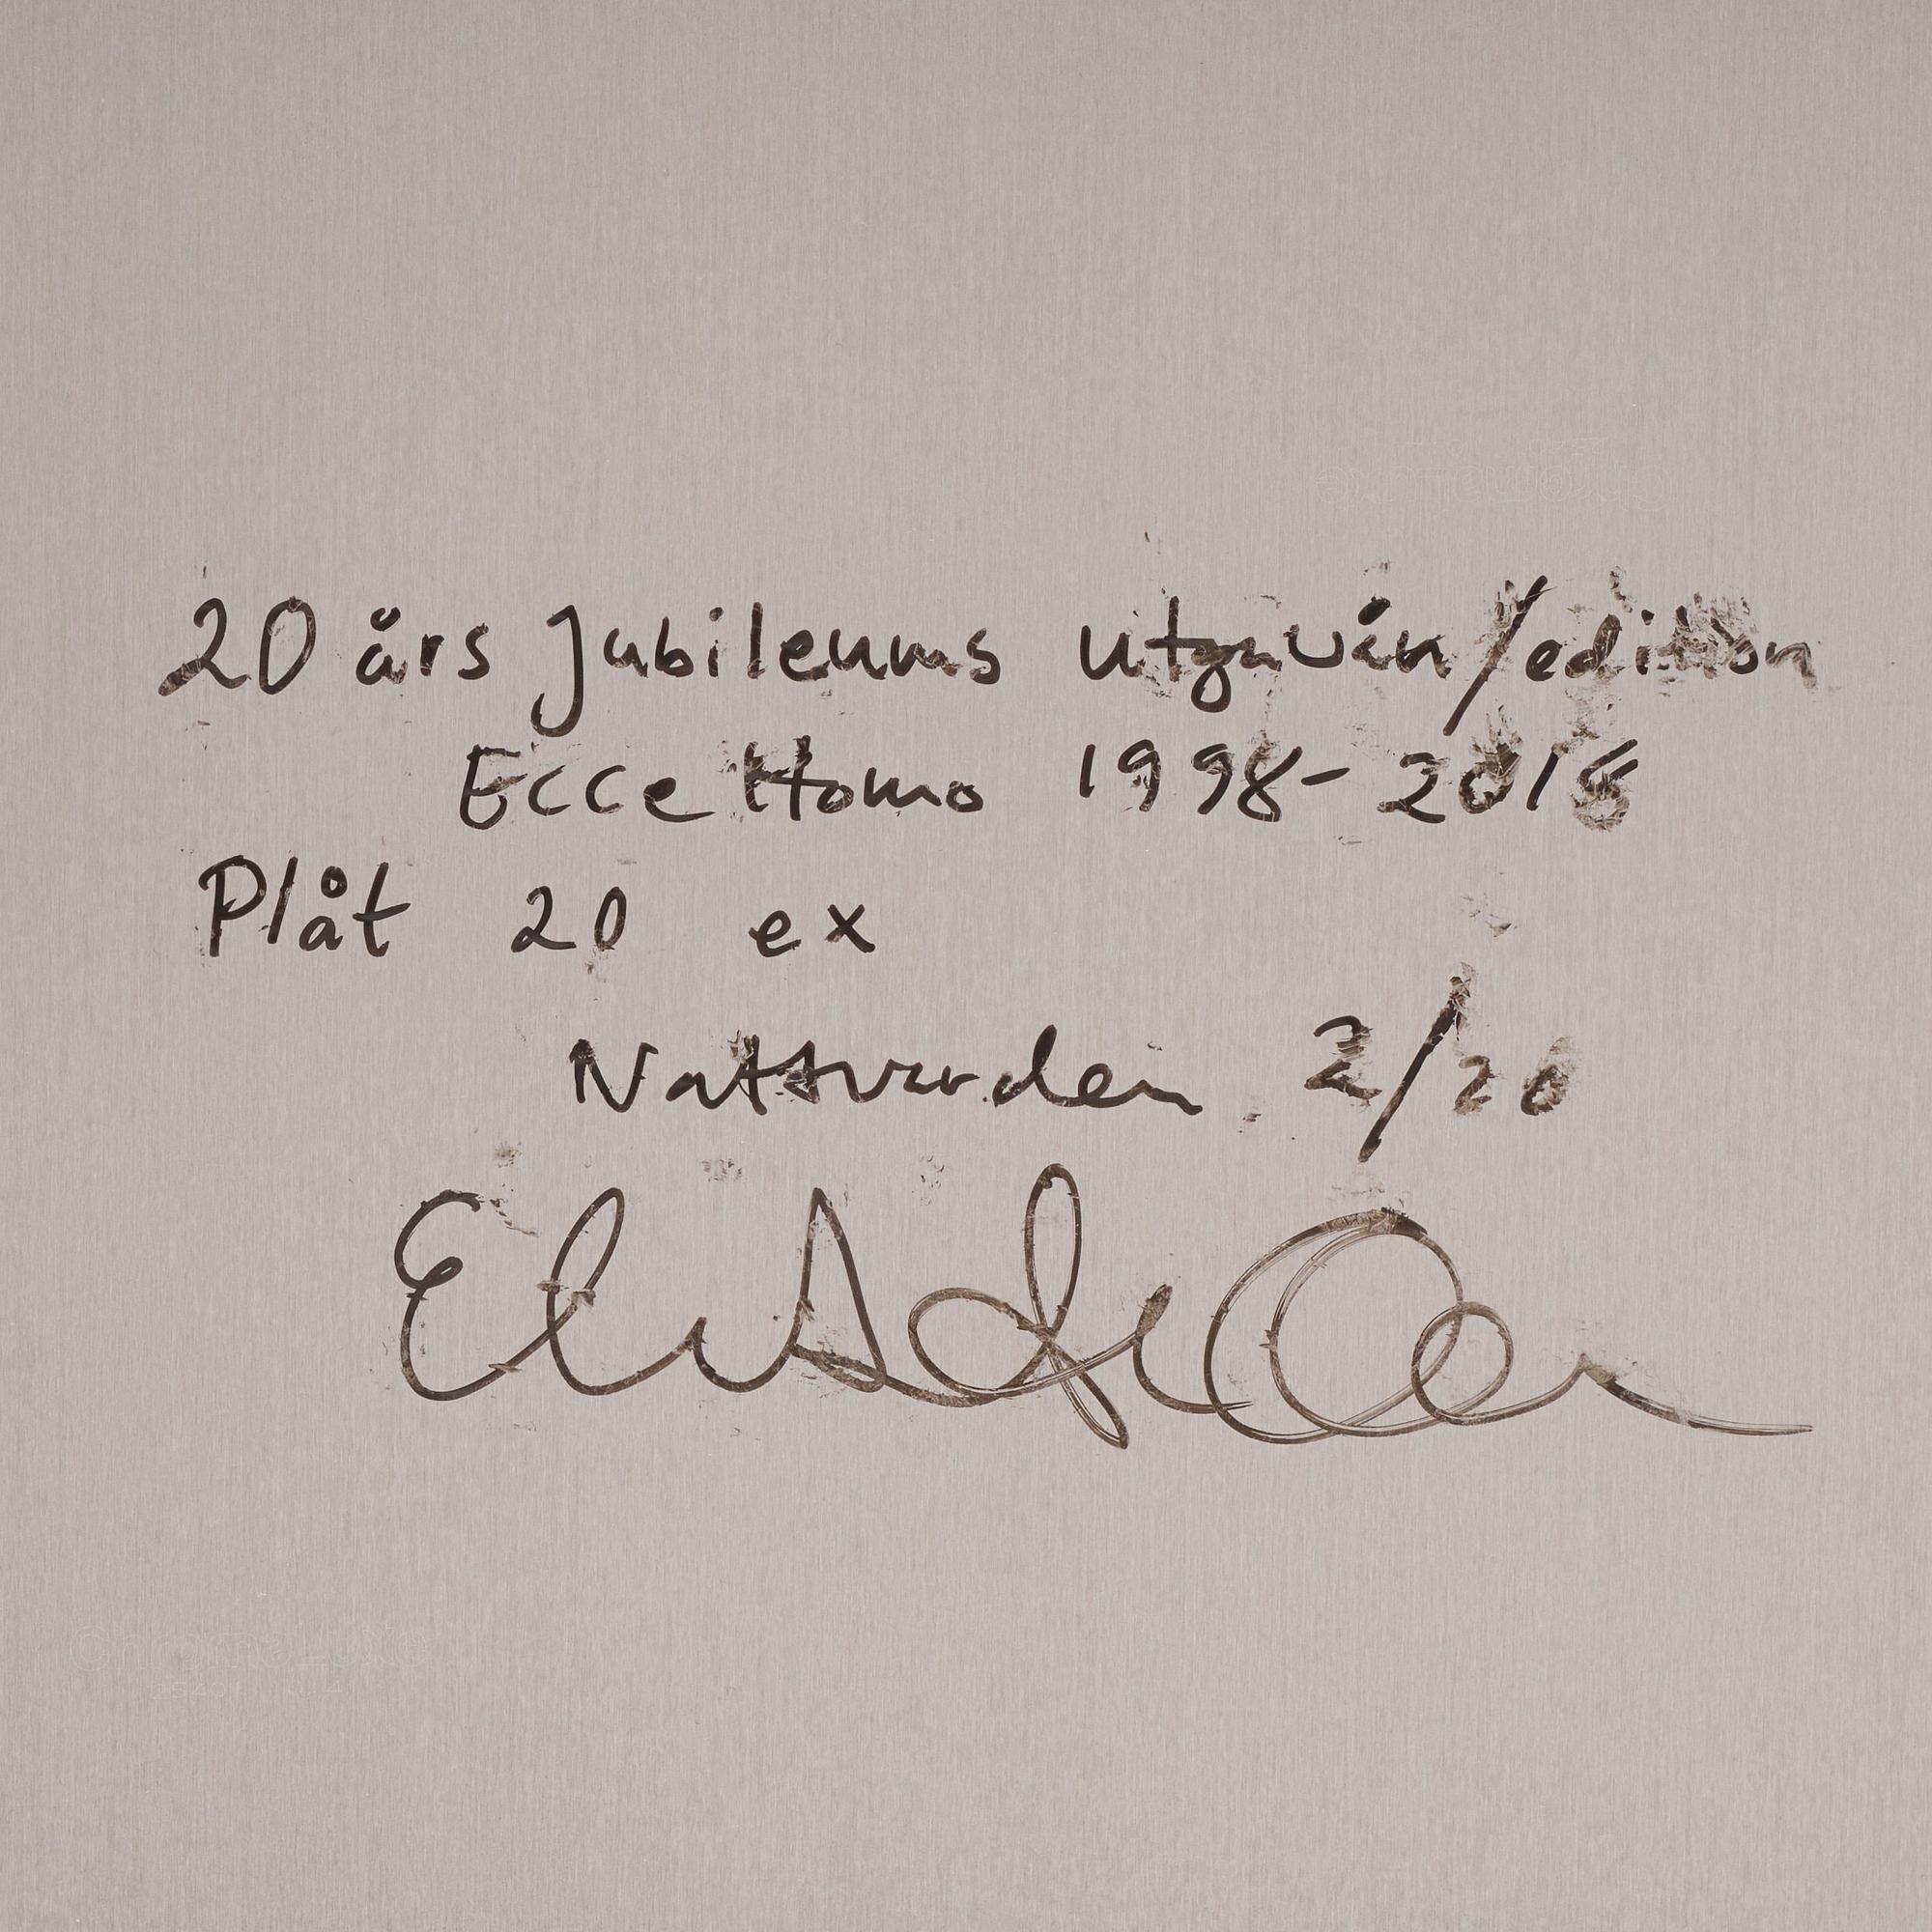 20 års Jubileums utgåvan/edition
Ecce Homo 1998-2018
Plåt 20 ex
Nattvarden. 2/20